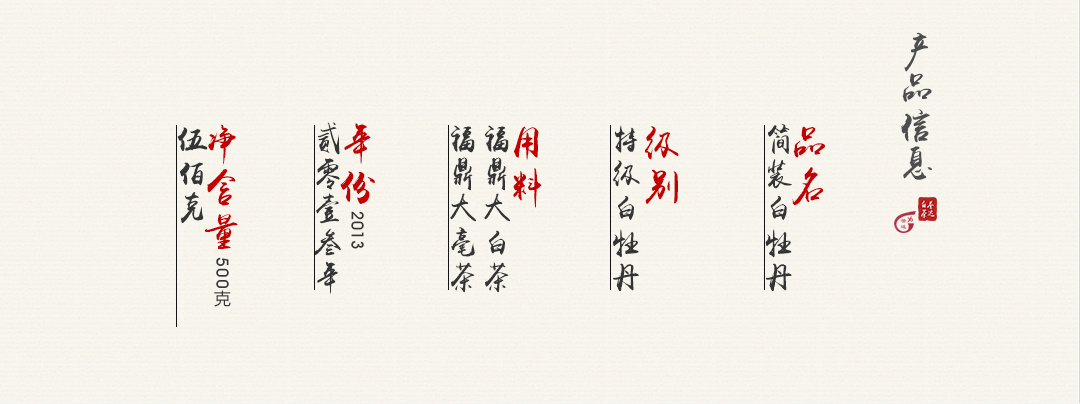 产品信息
品名
简装白牡丹
级别
特级白牡丹
用料
福鼎大白茶
福鼎大毫茶
年份 2013
贰零壹叁年
净含量 500克
伍佰克